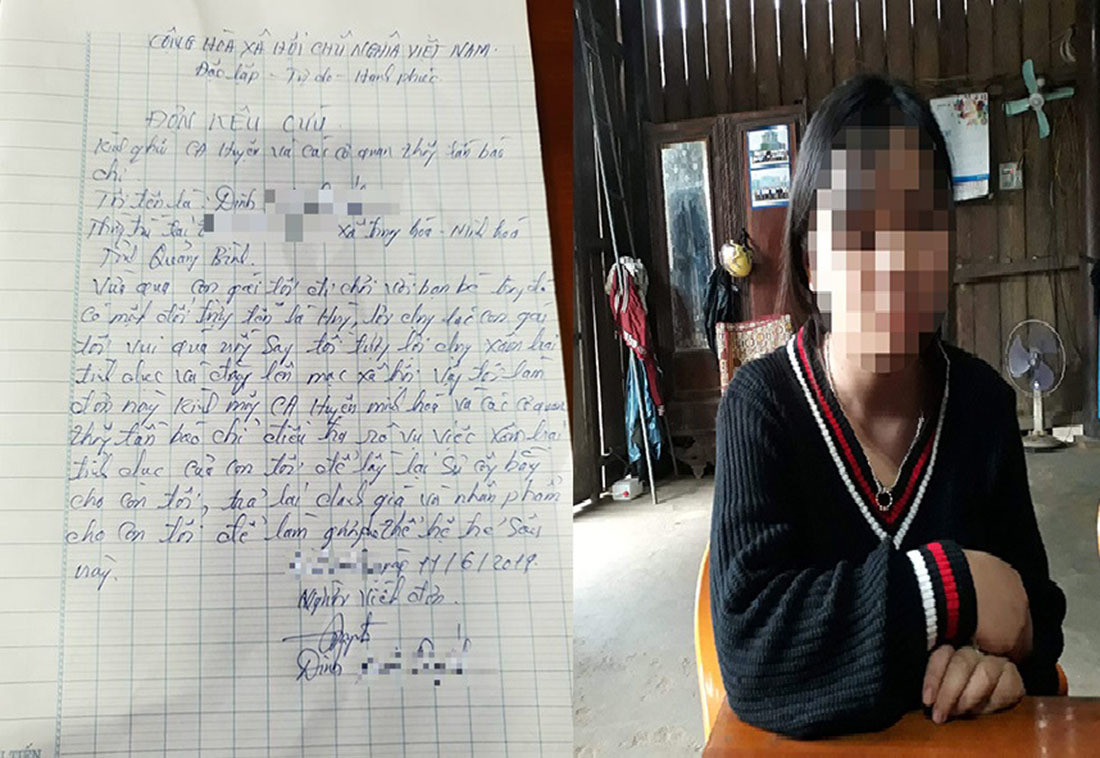 CÔNG HOÀ XÃ HỘI CHỦ NGHĨA VIỆT NAM.
Độc lập - Tự do - Hạnh phúc
ĐƠN KÊU CỨU.
Kính gửi CA Huyện và các cơ quan thông tấn báo
chí
Tôi tên là: Đinh
Thường trú tại xã Trung hoá - Minh hoá
Tỉnh Quảng Bình.
Vừa qua con gái tôi đi chơi với bạn bè trong đó
có một đối tượng tên là Huy, lợi dụng lúc con gái
tôi vui quá say tôi lợi dụng xâm hại
tình dục và đăng lên mạc xã hội vậy tôi làm
đơn này kính mong CA Huyện minh hoá và các cơ quan
thông tấn báo chí điều tra rõ vụ việc xâm hại
tình dục của con tôi để lấy lại sự công bằng
cho con tôi, trả lại danh giá và nhân phẩm
cho con tôi để làm gương cho thế hệ sau
này.
ngày 11/6/2019.
Người viết đơn.
Đinh